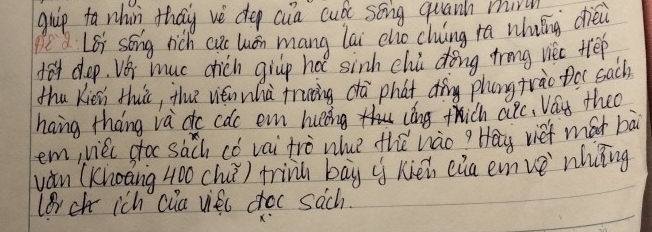 giúp ta nhìn thấy vẻ đẹp của cuộc sống quanh mình
Đề 2. Lối sống tích cực luôn mang lại cho chúng ta những điều
tốt đẹp. Với mục đích giúp học sinh chủ động trong việc tiếp
thu kiến thức, thư viện nhà trường đã phát động phong trào Đọc sách
hàng tháng và đc các em hưởng thu ứng thích cực. Vậy theo
em, việc đọc sách có vai trò như thế nào? Hãy viết một bài
văn (khoảng 400 chữ) trình bày ý kiến của em về những
lợi ch ích của việc đọc sách.